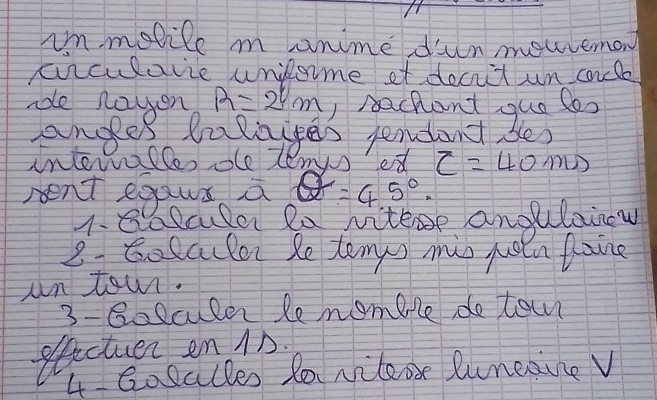 un mobile m animé d'un mouvement
circulaire uniforme et decrit un cercle
de rayon R = 24 m, sachant que les
angles balaiyés pendant des
intervalles de temps est τ = 40 ms
sont egaux à θ = 45°.
1- Calculer la vitesse angulaire w
2- Calculer le temps mis pour faire
un tour.
3- Calculer le nombre de tour
effectuer en 1s.
4- Calculles la vitesse luneaire V